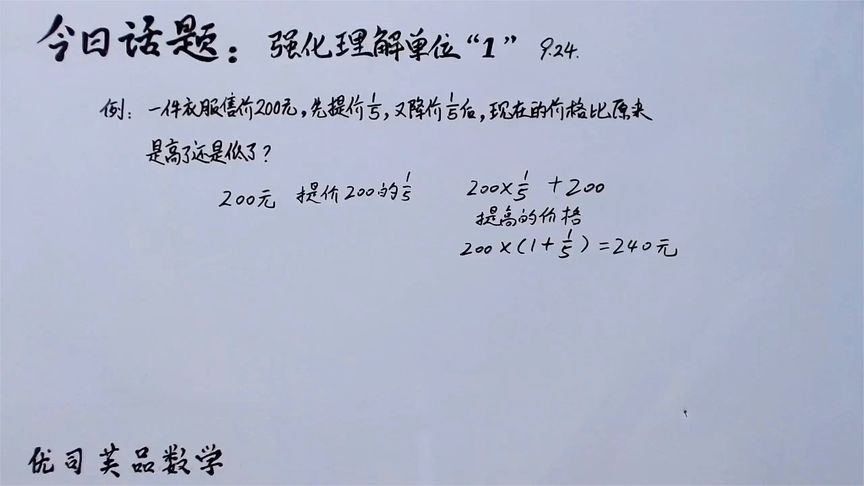 今日话题：强化理解单位“1” 9.24.
例：一件衣服售价200元，先提价1/5，又降价1/5后，现在的价格比原来
是高了还是低了？
200元 提价200的1/5 200×1/5 +200
提高的价格
200×(1+1/5)=240元
优司芙品数学